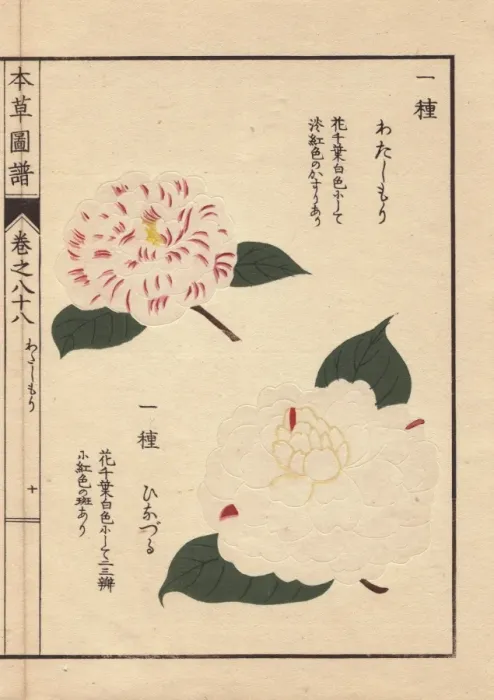 一種
わたしもり
花千葉白色にして
淡紅色のかすりあり
一種
ひなづる
花千葉白色にして二三瓣
に紅色の斑あり
本草圖譜
巻之八十八
わたしもり
十